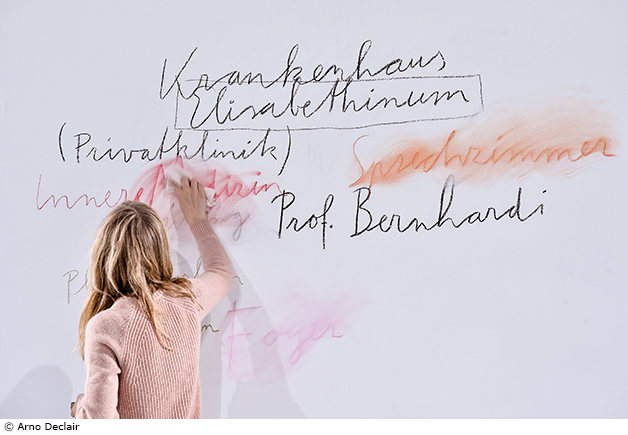 Krankenhaus
Elisabethinum
(Privatklinik)
Sprechzimmer
Innere
Prof. Bernhardi
Foyer
© Arno Declair